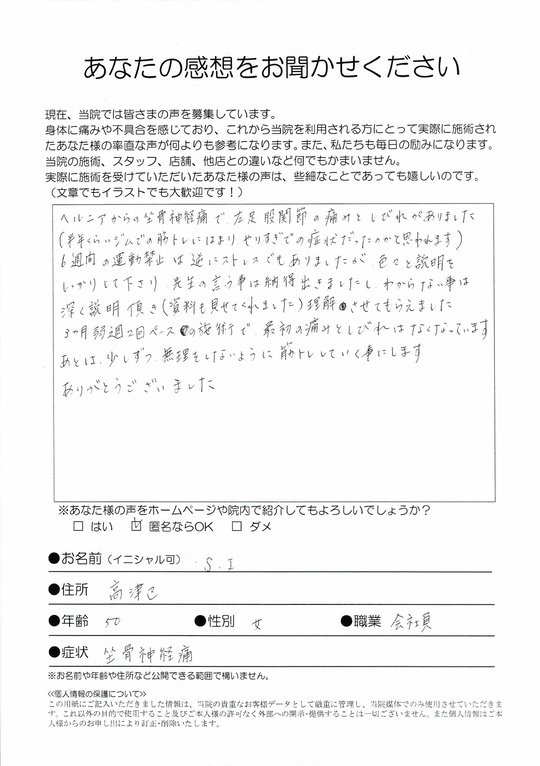 あなたの感想をお聞かせください
現在、当院では皆さまの声を募集しています。
身体に痛みや不具合を感じており、これから当院を利用される方にとって実際に施術され
たあなた様の率直な声が何よりも参考になります。また、私たちも毎日の励みになります。
当院の施術、スタッフ、店舗、他店との違いなど何でもかまいません。
実際に施術を受けていただいたあなた様の声は、些細なことであっても嬉しいのです。
(文章でもイラストでも大歓迎です!)
ヘルニアからの坐骨神経痛で、左足股関節の痛みとしびれがありました
(半年くらいジムでの筋トレにはまり やりすぎでの症状だったのかと思われます)
6週間の運動禁止は逆にストレスでもありましたが、色々と説明を
しっかりして下さり、先生の言う事は納得出きましたし、わからない事は
深く説明頂き(資料も見せてくれました)理解させてもらえました
3ヵ月弱週2回ペースの施術で、最初の痛みとしびれはなくなっています
あとは、少しずつ、無理をしないように筋トレしていく事にします
ありがとうございました
※あなた様の声をホームページや院内で紹介してもよろしいでしょうか?
□ はい ☑ 匿名ならOK □ ダメ
●お名前(イニシャル可) S.I
●住所 高津区
●年齢 50 ●性別 女 ●職業 会社員
●症状 坐骨神経痛
※お名前や年齢や住所など公開できる範囲で構いません。
≪個人情報の保護について≫
この用紙にご記入いただきました情報は、当院の貴重なお客様データとして厳重に管理し、当院媒体でのみ使用させていただきま
す。これ以外の目的で使用すること及びご本人様の許可なく外部への開示・提供することは一切ございません。また個人情報はご本
人様からのお申し出により訂正・削除いたします。